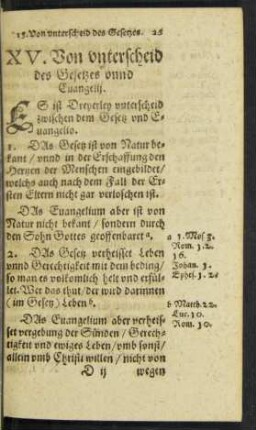 15. Von vnterscheid des Gesetzes. 25
XV. Von vnterscheid
des Gesetzes vnnd
Euangelij.
ES ist Dreyerley vnterscheid
zwischen dem Gesetz vnd E-
uangelio.
1. DAs Gesetz ist von Natur be-
kant / vnnd in der Erschaffung den
Hertzen der Menschen eingebildet /
welchs auch nach dem Fall der Er-
sten Eltern nicht gar verloschen ist.
DAs Euangelium aber ist von
Natur nicht bekant / sondern durch
den Sohn Gottes geoffenbaret a.
a 1. Mos 3.
Rom. 1. 2.
16.
Johan. 1.
Ephes. 1. 2.
2. DAs Gesetz verheisset Leben
vnnd Gerechtigkeit mit dem beding /
so man es volkomlich helt vnd erfül-
let. Wer das thut / der wird darinnen
(im Gesetz) Leben b.
b Matth. 22.
Luc. 10.
Rom. 10.
DAs Euangelium aber verheis-
set vergebung der Sünden / Gerech-
tigkeit vnd ewiges Leben / vmb sonst /
allein vmb Christi willen / nicht von
D ij wegen